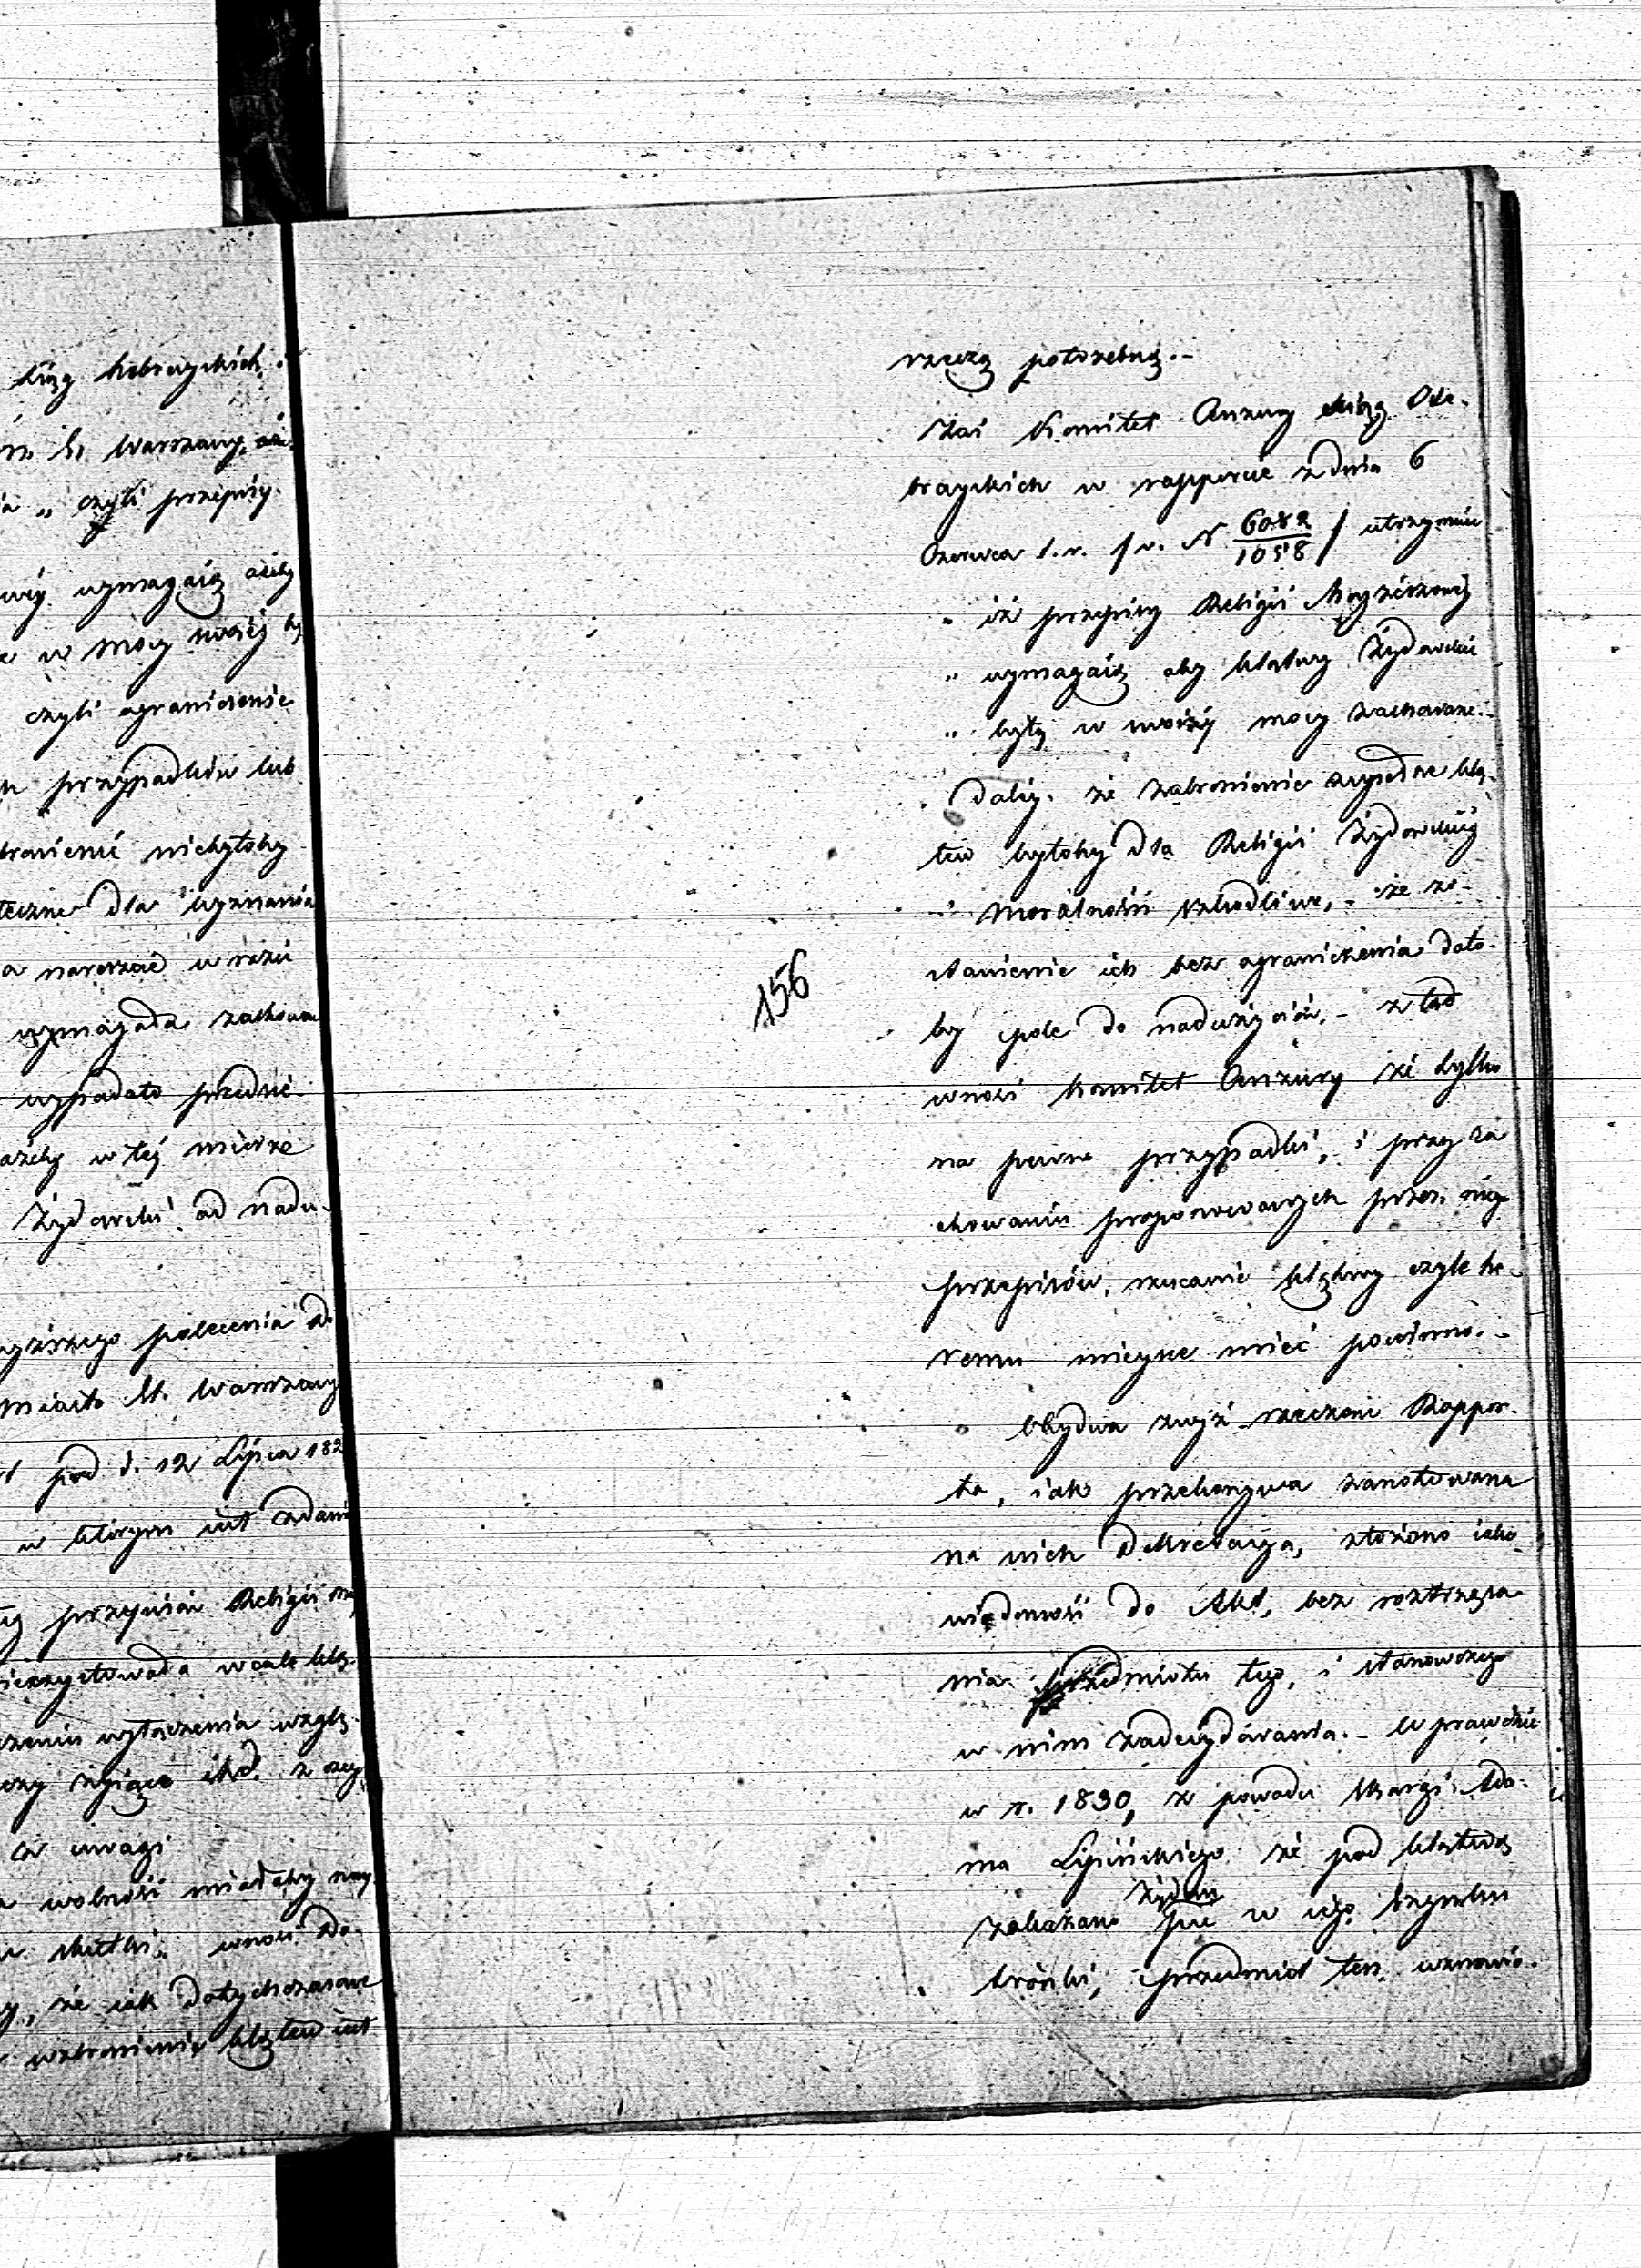 Xiąg hebrayskich.
M. Warszawy, aże
„ czyli przepisy
wymagaią ażeby
w mocy swoiéj by
czyli ograniczenie
przypadków lub
bronienié niebyłoby
teczne dla wyznania
a narazać w razie
wymagada zachowa
wypadało przedsię
ażeby w téj mierze
Żydowski od nadu-
wyższego polecenia
miasta St. Warszawy
pod d. 12 Lipca 182
w którym iest zdani
przepisów Religii
wcale klą-
wyłączenia wzglę-
z ozy
co uwagi
wolności miałaby nay
skutki, wnosi do-
że iak dotychczasowe
wzbronienie klątew iest
rzeczą potrzebną.-
Zaś Komitet Cenzury Xiąg He-
brayskich w rapporcie z dnia 6
Czerwca t. r. /v. N 6082/1058/ utrzymuie
„ iż przepisy Religii Moyżeszowéj
„ wymagaią aby klątwy Żydowskie
„ były w swoiéj mocy zachowane.-
daléj, że zabronienie zupełne klą-
tew byłoby dla Religii Żydowskiéj
i moralności szkodliwe, - że zo-
stawienie ich bez ograniczenia dało-
by pole do nadużyciów, - z tąd
wnosi Komitet Cenzury że tylko
na pewne przypadki, i przy za
chowaniu proponowanych przez niego
przepisów, rzucanie klątwy czyli he-
remu mieysce mieć powinno.-
Obydwa wyż rzeczone Rappor-
ta, iak przekonywa zanotowana
na nich Dekretacya, złożono iako
wiadomość do Akt, bez roztrząsa
nia przedmiotu tego, i stanowczego
w nim zadecydowania. - W prawdzie
w r. 1830, z powodu skargi Ada-
ma Lipińskiego że pod klątwą
zakazano Żydom pić w iego Szynku
trónki, przedmiot ten wznowio-
156